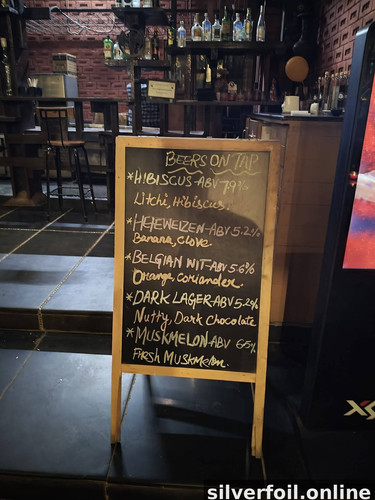 BEERS ON TAP
*HIBISCUS-ABV 7.9%
Litchi, Hibiscus.
*HEFEWEIZEN-ABV 5.2%
Banana, Clove
*BELGIAN WIT-ABV 5.6%
Orange, Coriander.
*DARK LAGER-ABV 5.2%
Nutty, Dark Chocolate
*MUSKMELON-ABV 6.5%
Fresh Muskmelon.
silverfoil.online